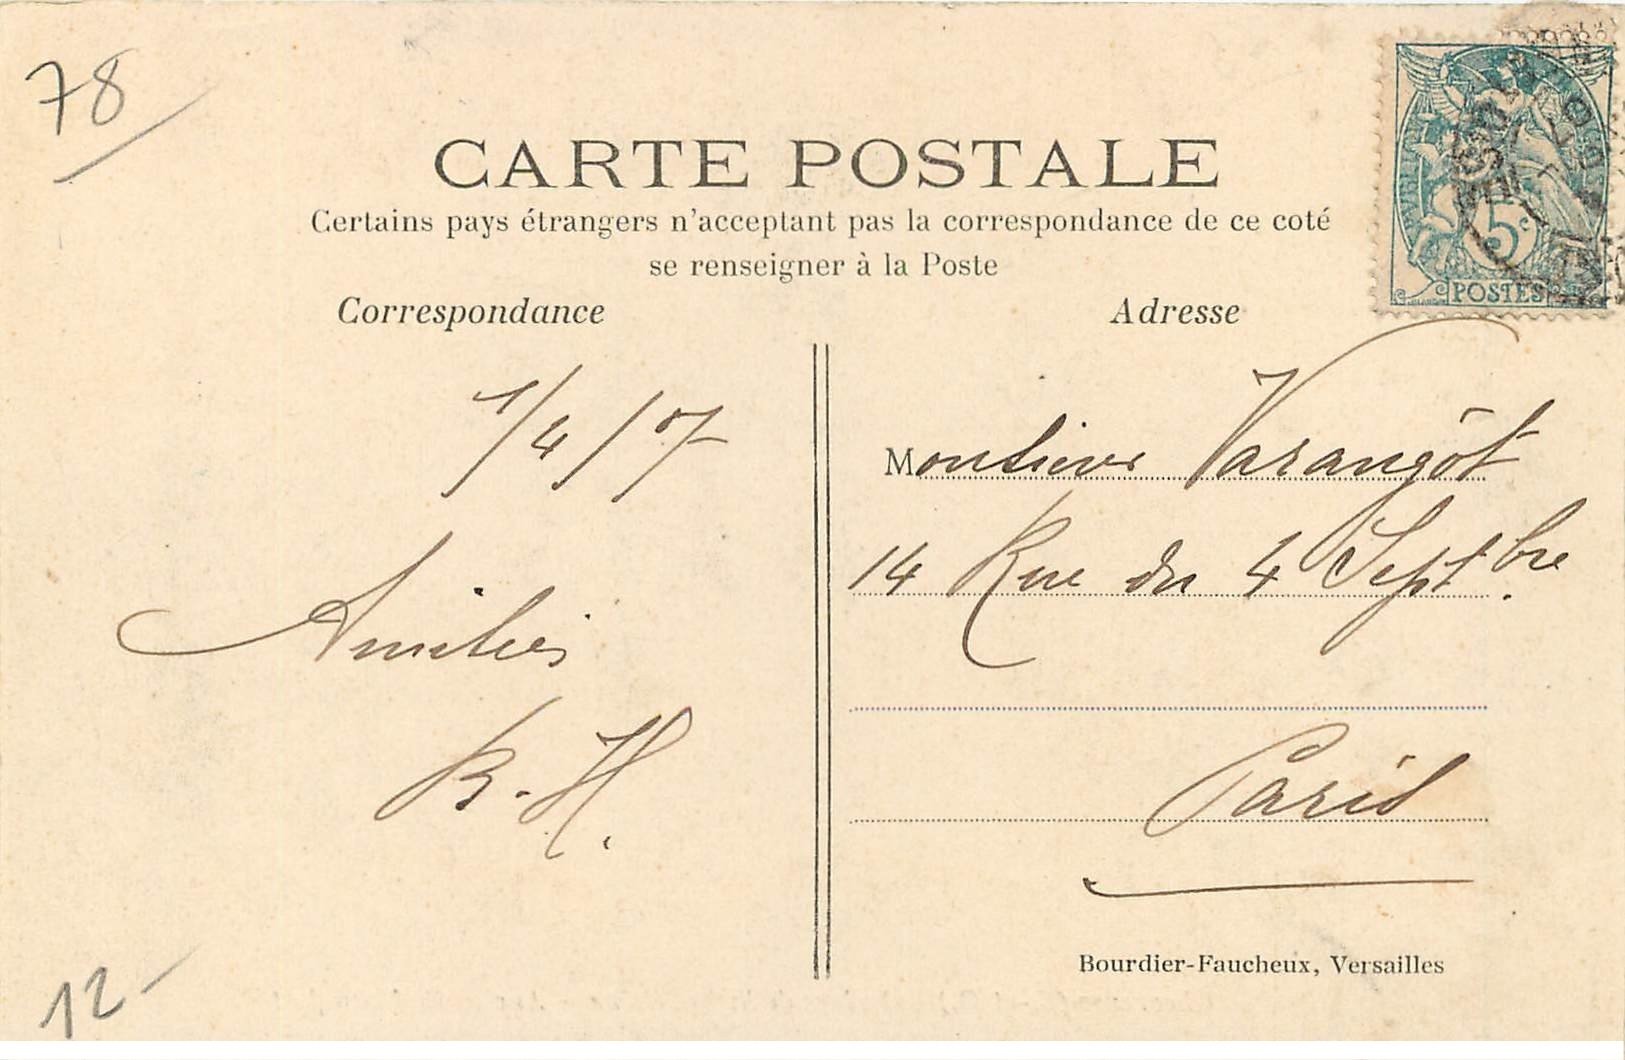 78
CARTE POSTALE
Certains pays étrangers n'acceptant pas la correspondance de ce coté
se renseigner à la Poste
Correspondance
1/4/07
Amitiés
B. H.
Adresse
Monsieur Varangôt
14 Rue du 4 Sept.bre
Paris
Bourdier-Faucheux, Versailles
12-
5c
POSTES